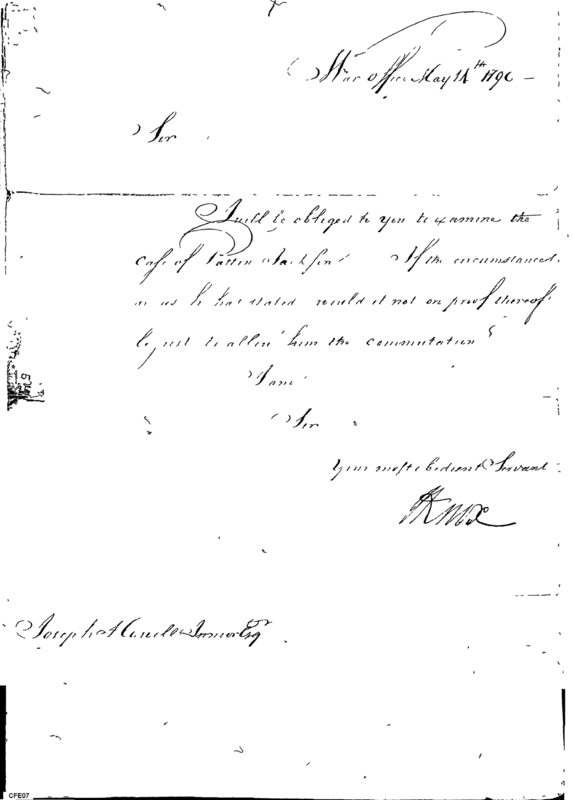 War office May 14th 1790
Sir
I will be obliged to you to examine the
case of Patten Jackson If the circumstances
are as he has stated would it not on proof thereof
be just to allow him the commutation?
I am
Sir
Your most obedient Servant
HKnox
Joseph Howell Junior Esqr
CFE07